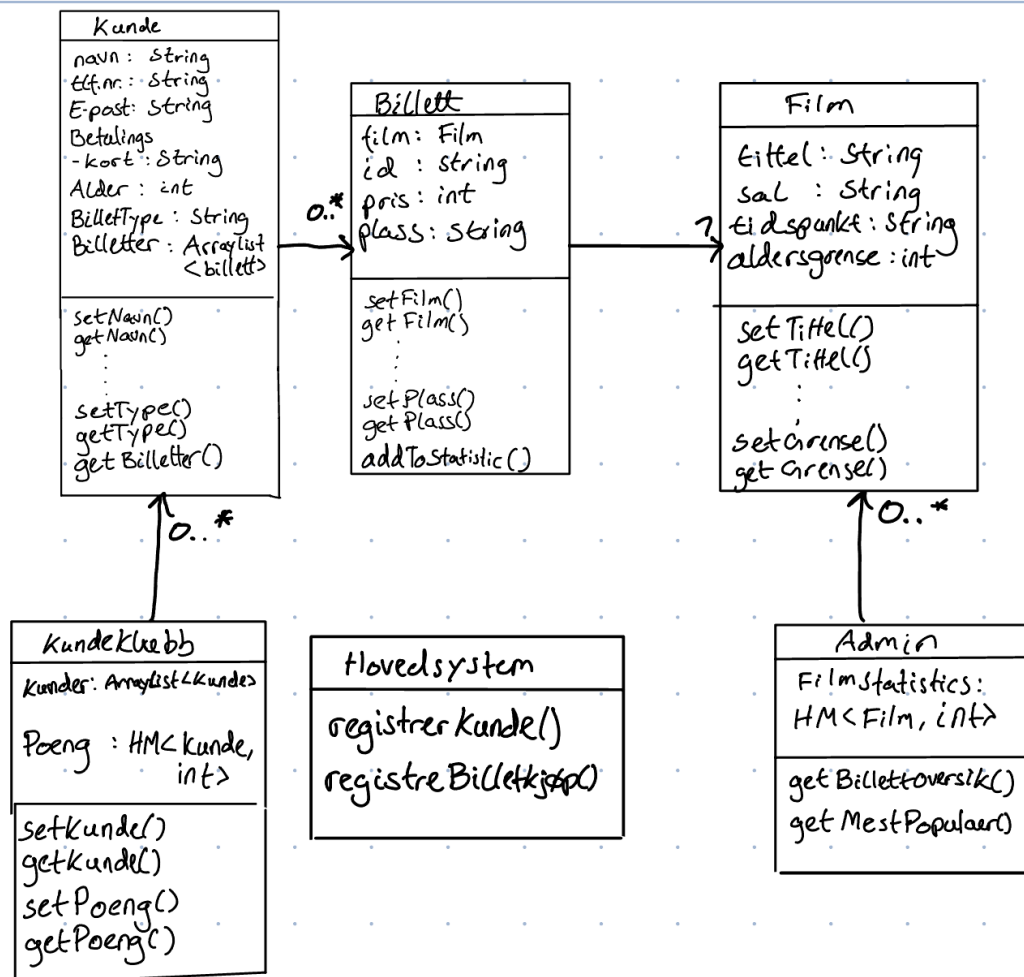 Kunde
navn : String
tlf.nr. : String
E-post: String
Betalings
-kort : String
Alder : int
BillettType : String
Billetter : Arraylist
<billett>
setNavn()
getNavn()
setType()
getType()
getBilletter()
0..*
Billett
film : Film
id : String
pris : int
plass : String
setFilm()
getFilm()
setPlass()
getPlass()
addToStatistic()
1
Film
tittel : String
sal : String
tidspunkt : String
aldersgrense : int
setTittel()
getTittel()
setGrense()
getGrense()
0..*
0..*
Kundeklubb
Kunder: ArrayList<Kunde>
Poeng : HM<Kunde,
int>
setKunde()
getKunde()
setPoeng()
getPoeng()
Hovedsystem
registrerKunde()
registreBilletkjøp()
Admin
FilmStatistics:
HM<Film, int>
getBillettoversik()
getMestPopulaer()